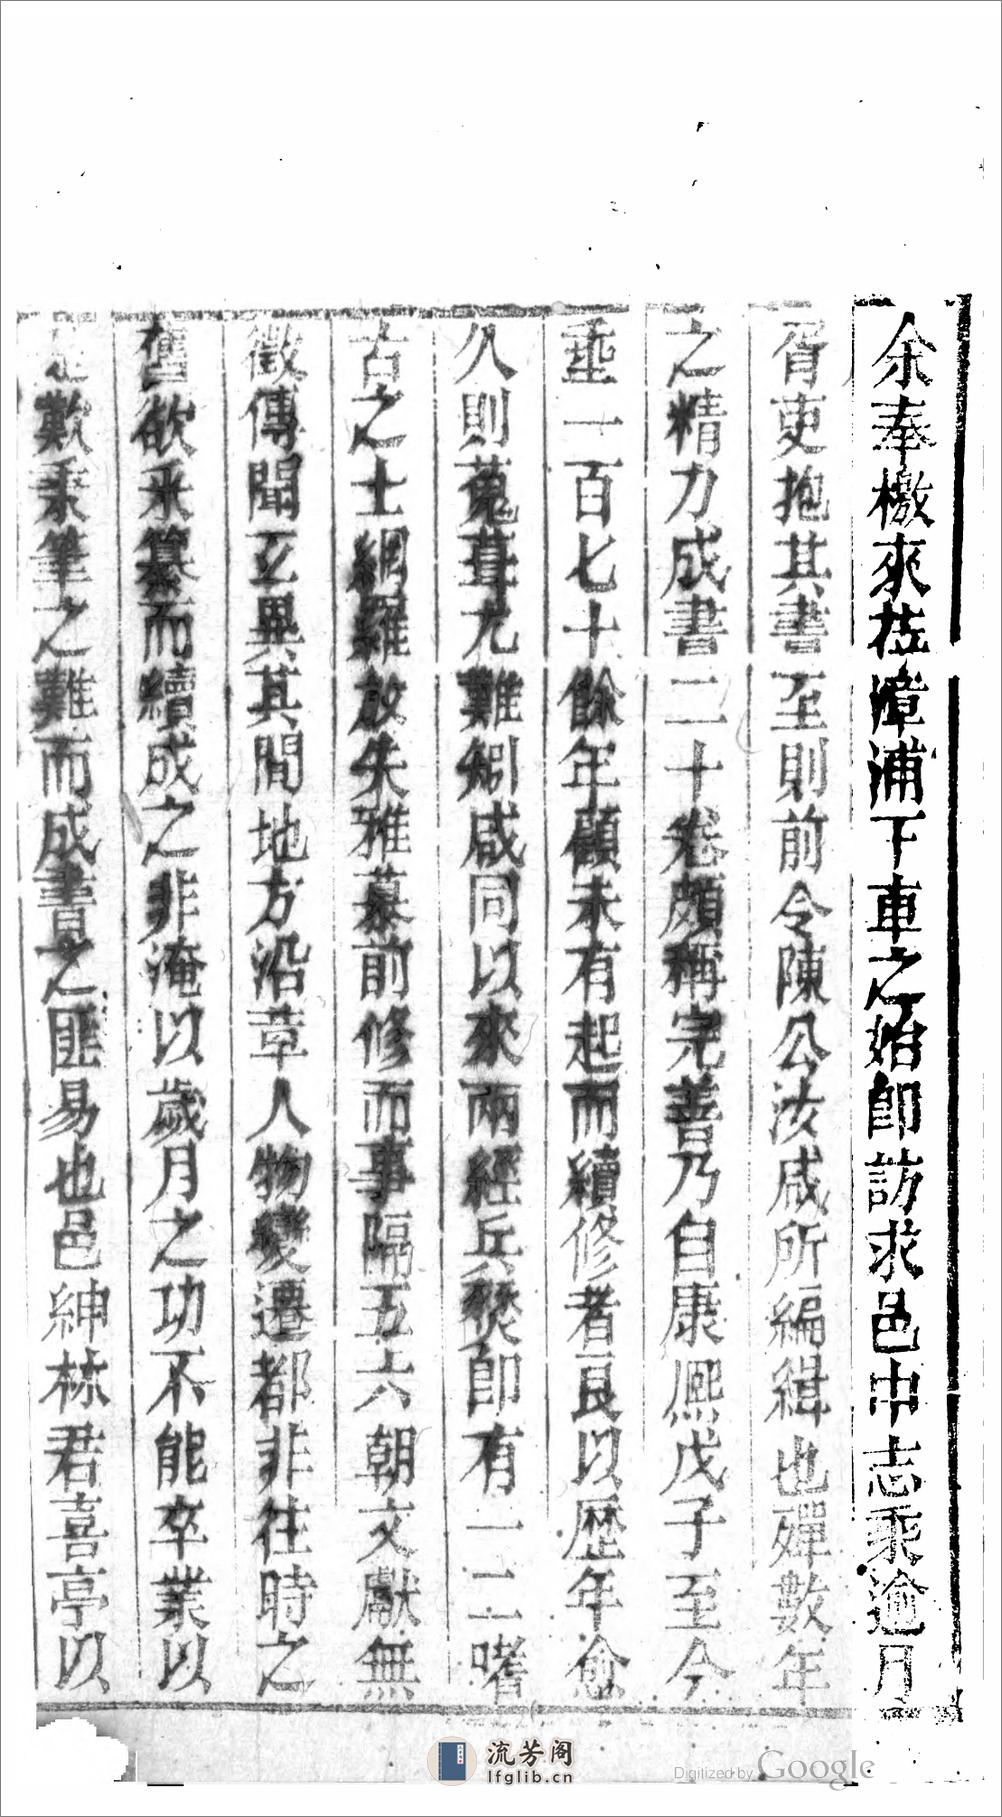 余奉檄來莅漳浦下車之始即訪求邑中志乘逾月
胥吏抱其書至則前令陳公汝咸所編緝也殫數年
之精力成書二十卷頗稱完善乃自康熙戊子至今
垂一百七十餘年顧未有起而續修者良以歴年愈
久則蒐葺尤難矧咸同以來兩經兵燹即有一二嗜
古之士網羅放失雅慕前修而事隔五六朝文獻無
徵傳聞互異其間地方沿革人物變遷都非往時之
舊欲釆纂而續成之非淹以歲月之功不能卒業以
是歎秉筆之難而成書之匪易也邑紳林君喜亭以
流芳阁
lfglib.cn
Digitized by Google